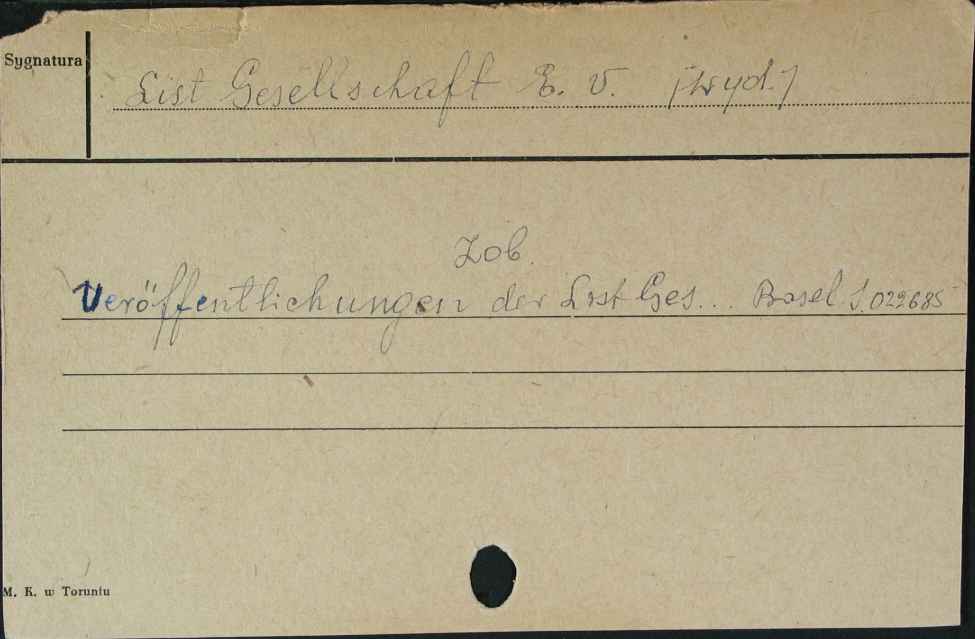 Sygnatura
List Gesellschaft E. V. [wyd.]
Zob.
Veröffentlichungen der List Ges... Basel S. 029685
M. K. w Toruniu